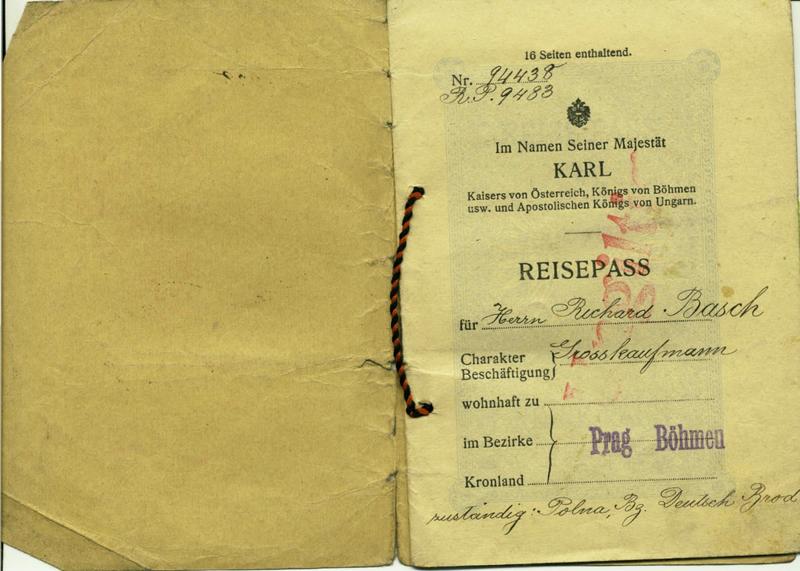 16 Seiten enthaltend.
Nr. 94438
R.P. 9483
Im Namen Seiner Majestät
KARL
Kaisers von Österreich, Königs von Böhmen
usw. und Apostolischen Königs von Ungarn.
REISEPASS
für Herrn Richard Basch
Charakter
Beschäftigung
Grosskaufmann
wohnhaft zu
im Bezirke
Prag Böhmen
Kronland
zuständig: Polna, Bz. Deutsch Brod